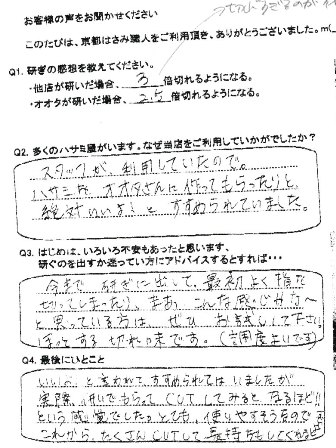 お客様の声をお聞かせください
このたびは、京都はさみ職人をご利用頂き、ありがとうございました。
Q1. 研ぎの感想を教えてください。
・他店が研いだ場合、 3 倍切れるようになる。
・オオタが研いだ場合、 2.5 倍切れるようになる。
Q2. 多くのハサミ屋がいます。なぜ当店をご利用していかがでしたか?
スタッフが、利用していたので。
ハサミ屋 オオタさんに作ってもらったりと、
絶対いいよ!と すすめられていました。
Q3. はじめは、いろいろ不安もあったと思います、
研ぐのを出すか迷ってい方にアドバイスするとすれば・・・
今まで 研ぎに出して、最初 よく指を
切ってしまったり、まあ、こんな感じかな〜
と思っている方は ぜひ お試し して下さい。
切れ味です。
Q4. 最後にひとこと
いいよ と言われて、すすめられてはいましたが
実際、研いでもらって CUTしてみると なるほど!!
という感覚でした。とても、使いやすそうなので
これから、たくさんCUTして